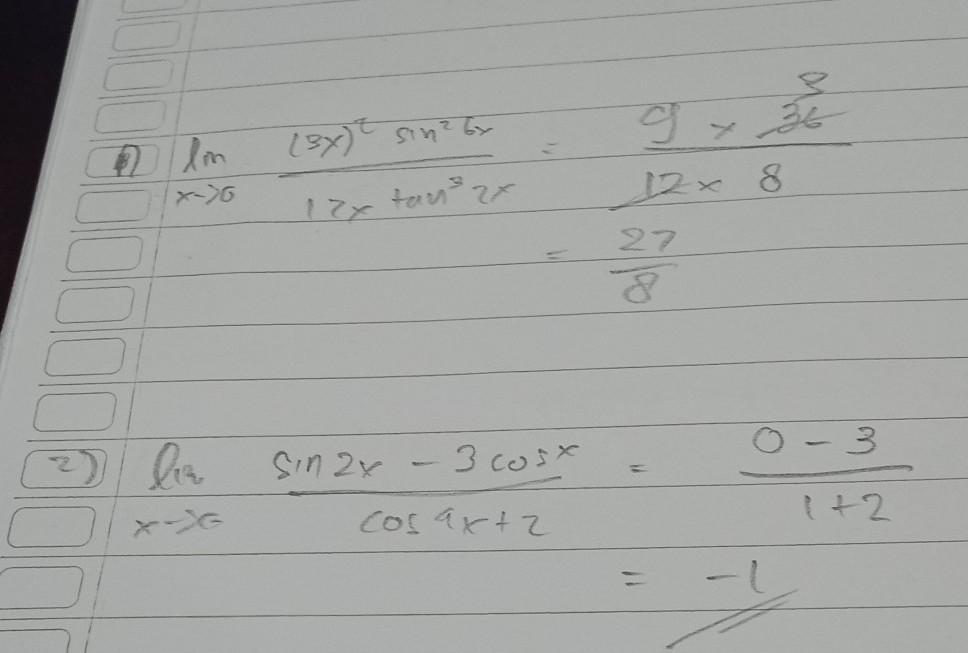 1) lim x->0 (3x)² sin² 6x / 12x tan³ 2x = 9 x 36 3 / 12 x 8
= 27 / 8
2) lim x->0 sin 2x - 3 cos x / cos 4x + 2 = 0 - 3 / 1 + 2
= -1